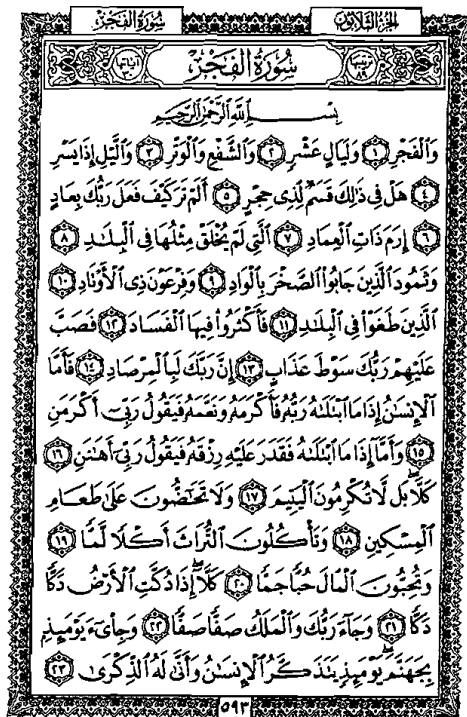 الجُزْءُ الثَّلَاثُونَ سُورَةُ الفَجْرِ
ترتيبها ٨٩ سُورَةُ الفَجْرِ آياتها ٣٠
بِسْمِ ٱللَّهِ ٱلرَّحْمَٰنِ ٱلرَّحِيمِ
وَٱلْفَجْرِ ١ وَلَيَالٍ عَشْرٍ ٢ وَٱلشَّفْعِ وَٱلْوَتْرِ ٣ وَٱلَّيْلِ إِذَا يَسْرِ
٤ هَلْ فِى ذَٰلِكَ قَسَمٌ لِّذِى حِجْرٍ ٥ أَلَمْ تَرَ كَيْفَ فَعَلَ رَبُّكَ بِعَادٍ
٦ إِرَمَ ذَاتِ ٱلْعِمَادِ ٧ ٱلَّتِى لَمْ يُخْلَقْ مِثْلُهَا فِى ٱلْبِلَٰدِ ٨
وَثَمُودَ ٱلَّذِينَ جَابُوا۟ ٱلصَّخْرَ بِٱلْوَادِ ٩ وَفِرْعَوْنَ ذِى ٱلْأَوْتَادِ ١٠
ٱلَّذِينَ طَغَوْا۟ فِى ٱلْبِلَٰدِ ١١ فَأَكْثَرُوا۟ فِيهَا ٱلْفَسَادَ ١٢ فَصَبَّ
عَلَيْهِمْ رَبُّكَ سَوْطَ عَذَابٍ ١٣ إِنَّ رَبَّكَ لَبِٱلْمِرْصَادِ ١٤ فَأَمَّا
ٱلْإِنسَٰنُ إِذَا مَا ٱبْتَلَىٰهُ رَبُّهُۥ فَأَكْرَمَهُۥ وَنَعَّمَهُۥ فَيَقُولُ رَبِّىٓ أَكْرَمَنِ
١٥ وَأَمَّآ إِذَا مَا ٱبْتَلَىٰهُ فَقَدَرَ عَلَيْهِ رِزْقَهُۥ فَيَقُولُ رَبِّىٓ أَهَٰنَنِ ١٦
كَلَّا ۖ بَل لَّا تُكْرِمُونَ ٱلْيَتِيمَ ١٧ وَلَا تَحَٰٓضُّونَ عَلَىٰ طَعَامِ
ٱلْمِسْكِينِ ١٨ وَتَأْكُلُونَ ٱلتُّرَاثَ أَكْلًا لَّمًّا ١٩
وَتُحِبُّونَ ٱلْمَالَ حُبًّا جَمًّا ٢٠ كَلَّآ إِذَا دُكَّتِ ٱلْأَرْضُ دَكًّا
دَكًّا ٢١ وَجَآءَ رَبُّكَ وَٱلْمَلَكُ صَفًّا صَفًّا ٢٢ وَجِا۟ىٓءَ يَوْمَئِذٍۭ
بِجَهَنَّمَ ۚ يَوْمَئِذٍ يَتَذَكَّرُ ٱلْإِنسَٰنُ وَأَنَّىٰ لَهُ ٱلذِّكْرَىٰ ٢٣
٥٩٣